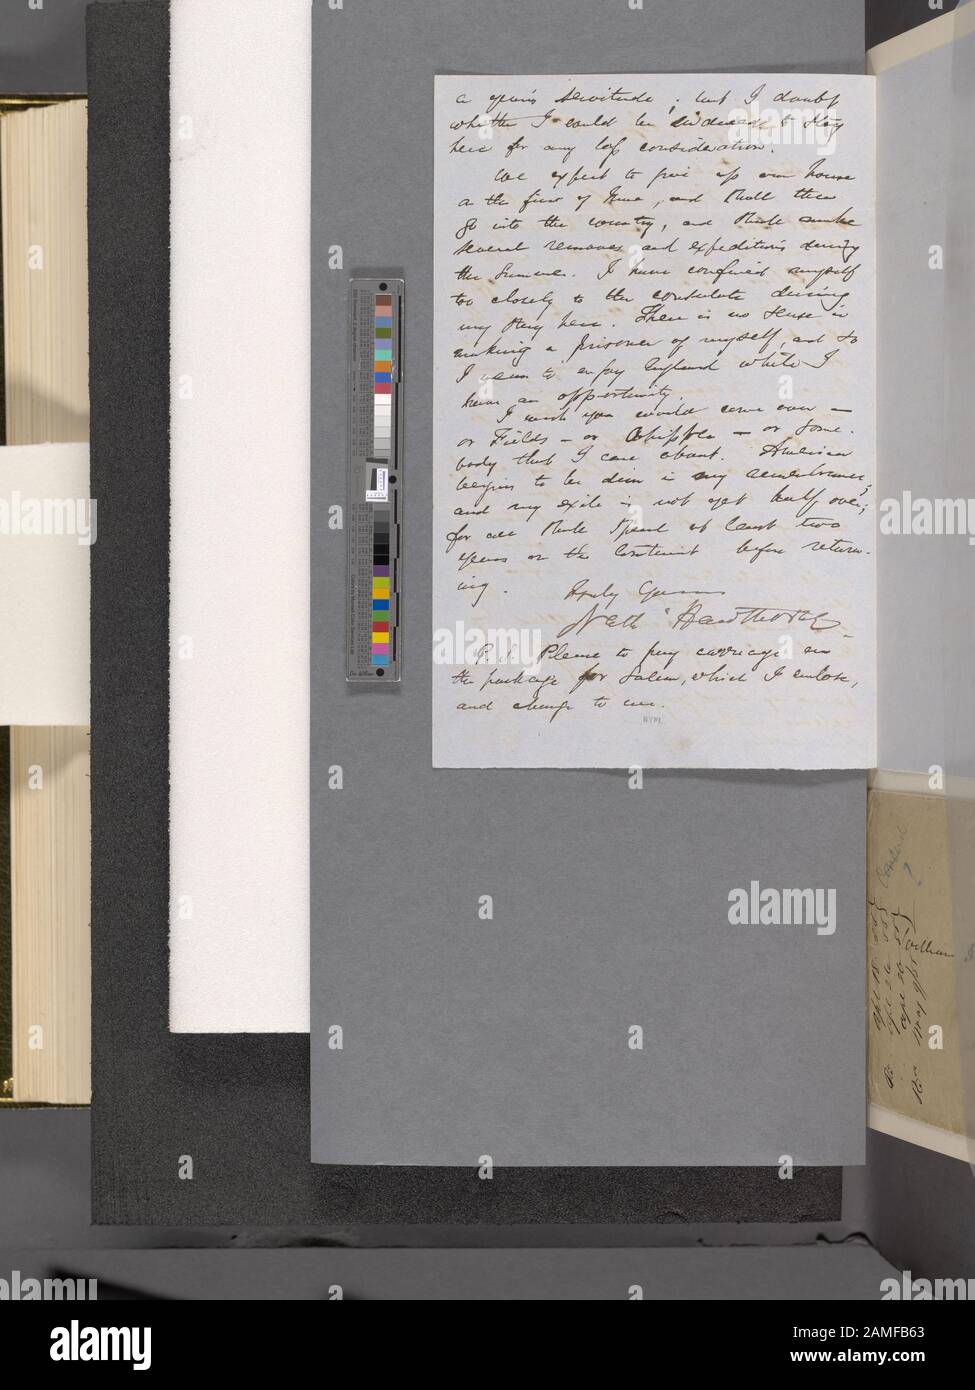 a year's servitude; but I doubt
whether I could be induced to stay
here for any less consideration.
We expect to give up our house
on the first of June, and shall then
go into the country, and shall make
several removes and expeditions during
the summer. I have confined myself
too closely to the consulate during
my stay here. There is no sense in
making a prisoner of myself, and so
I mean to enjoy England while I
have an opportunity.
I wish you would come over —
or Fields — or Whipple — or some-
body that I care about. America
begins to be dim in my remembrance;
and my exile is not yet half over;
for we shall spend at least two
years on the Continent before return-
ing. Truly Yours
Nath Hawthorne.
P.S. Please to pay carriage on
the package for Salem, which I enclose,
and charge to me.
NYPL
William
alamy
Image ID: 2AMFB63
www.alamy.com